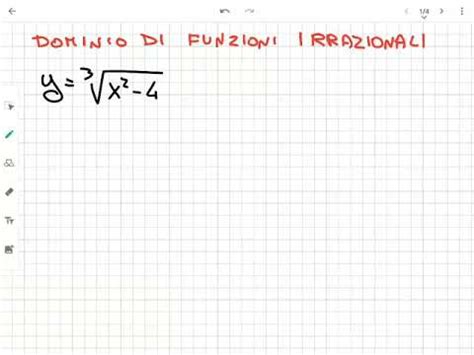 1/4
DOMINIO DI FUNZIONI IRRAZIONALI
y=³√x²-4
Tт